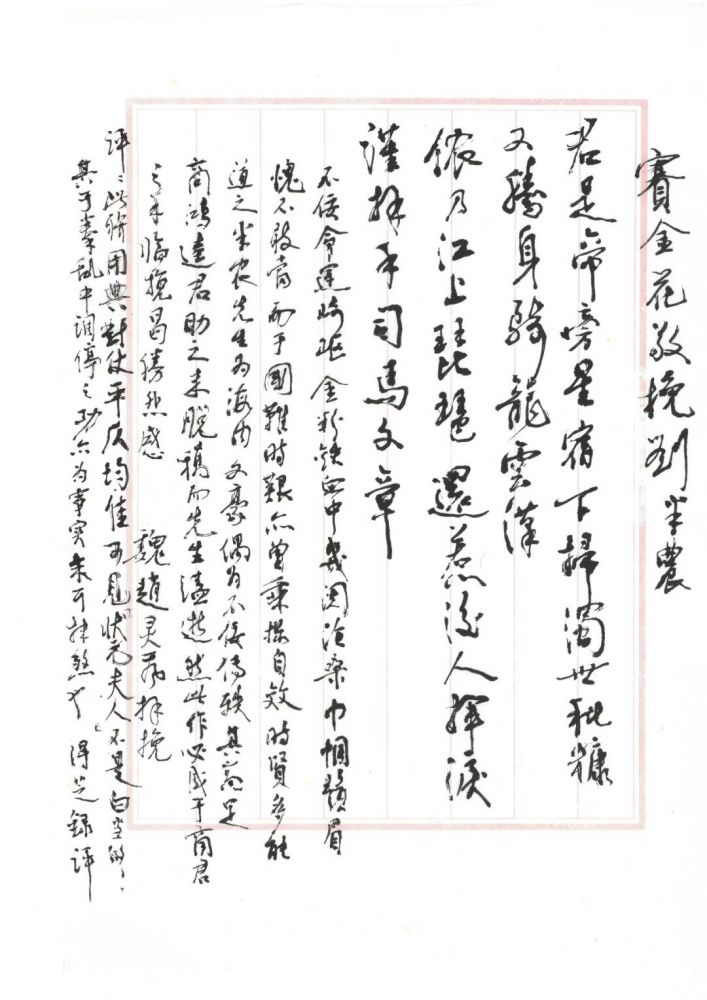 賽金花敬挽刘半農
君是帝傍星宿下掃濁世秕糠
又騰身騎龍雲漢
儂乃江上琵琶還惹後人揮淚
謹拜手司馬文章
不佞命運崎岖金粉鉄血中幾閲滄桑巾幗鬚眉
愧不敢當而于國難時艱亦曾乘機自效時賢多能
道之半农先生为海内文豪偶为不佞傳軼其高足
商鴻逵君助之未脱稿而先生溘逝然此作必成于商君
之手臨挽曷勝悲感 魏趙灵飛拜挽
评：此联用典對仗平仄均佳可見状元夫人不是白当的：
其于拳乱中调停之功亦为事实未可抹煞也 得芝録评